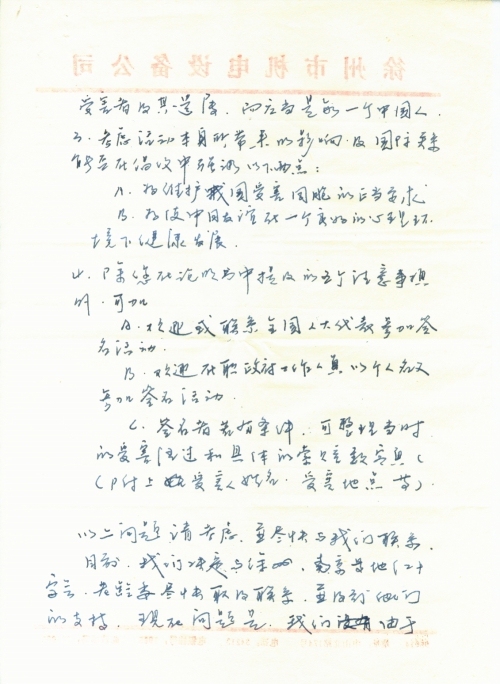 徐州市机电设备公司
受害者及其遗属，而应当是每一个中国人。
三、考虑活动本身所带来的影响及国际关系
能否在倡议中强调以下两点：
A. 为维护我国受害同胞的正当要求
B. 为使中日友谊在一个良好的心理环
境下健康发展.
四. 除您在说明书中提及的五个注意事项
外.可加
A. 欢迎或联系全国人大代表参加签
名活动.
B. 欢迎在职政府工作人员以个人名义
参加签名活动.
C. 签名者若有条件，可整理当时
的受害经过和具体的索赔数字等（
（附上受害人姓名.受害地点等）.
以上问题请考虑.并尽快与我们联系
目前，我们决定与 南京等地
尽快取得联系，并得到他们
的支持，现在问题是，我们 由于